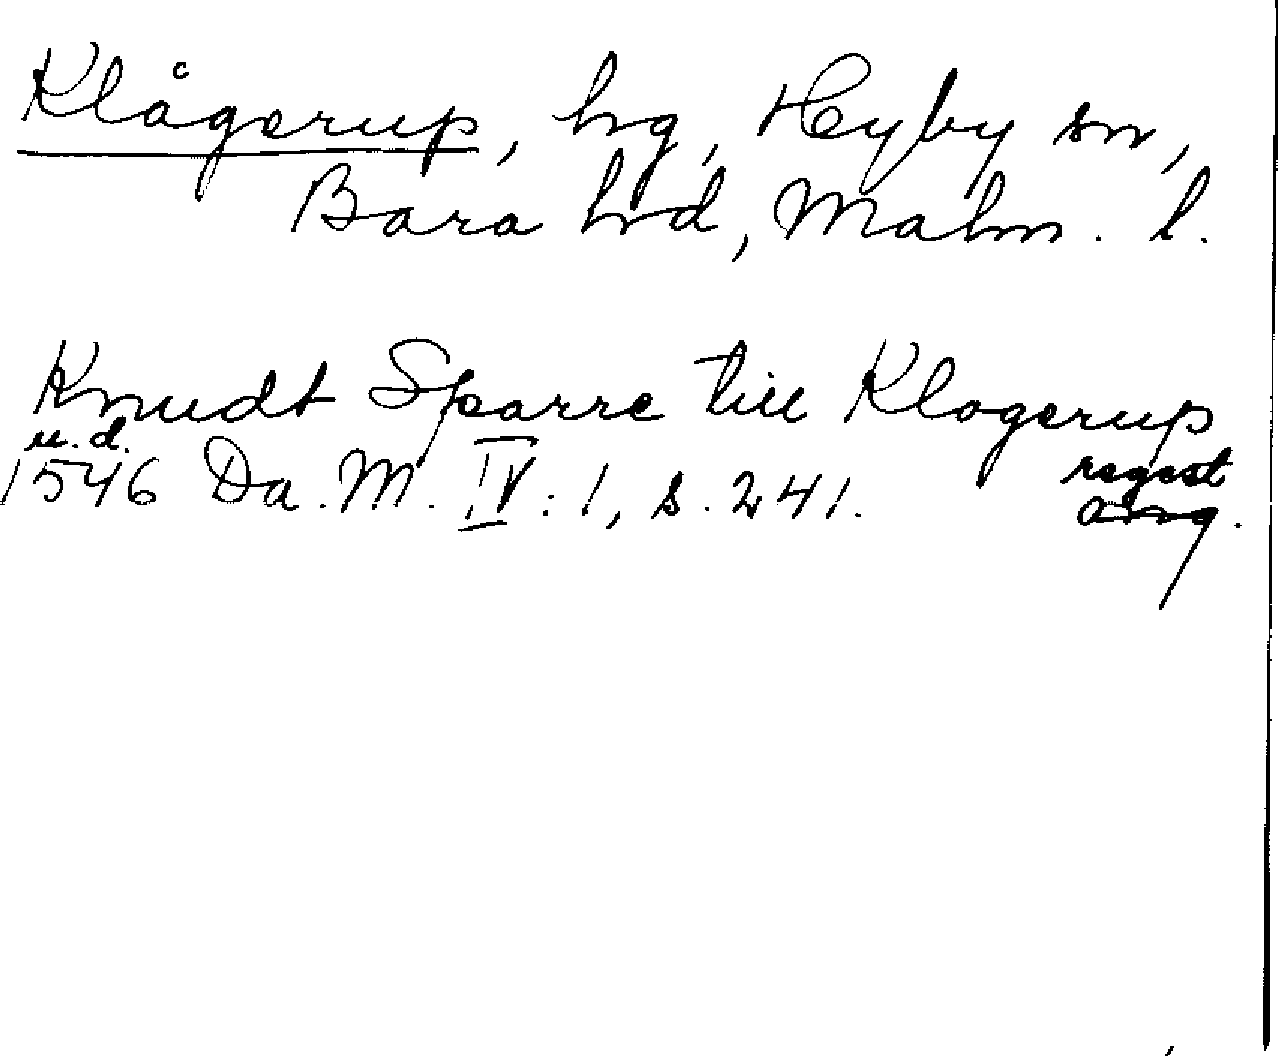 Klågerup, hg, Hyby sn,
Bara hd, Malm. l.
Knudt Sparre till Klogerup
u. d.
1546 Da. M. IV: 1, s. 241. regest